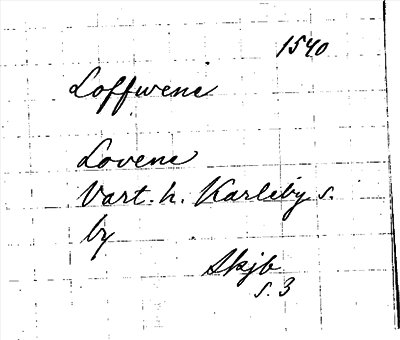 1540
Loffwene
Lovene
Vart. h. Karleby s.
by
Skjb
s. 3